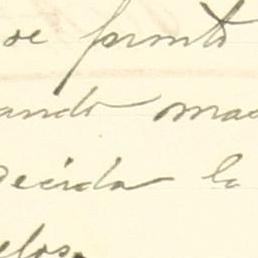 se pronto
ando mas
decida la
elos.